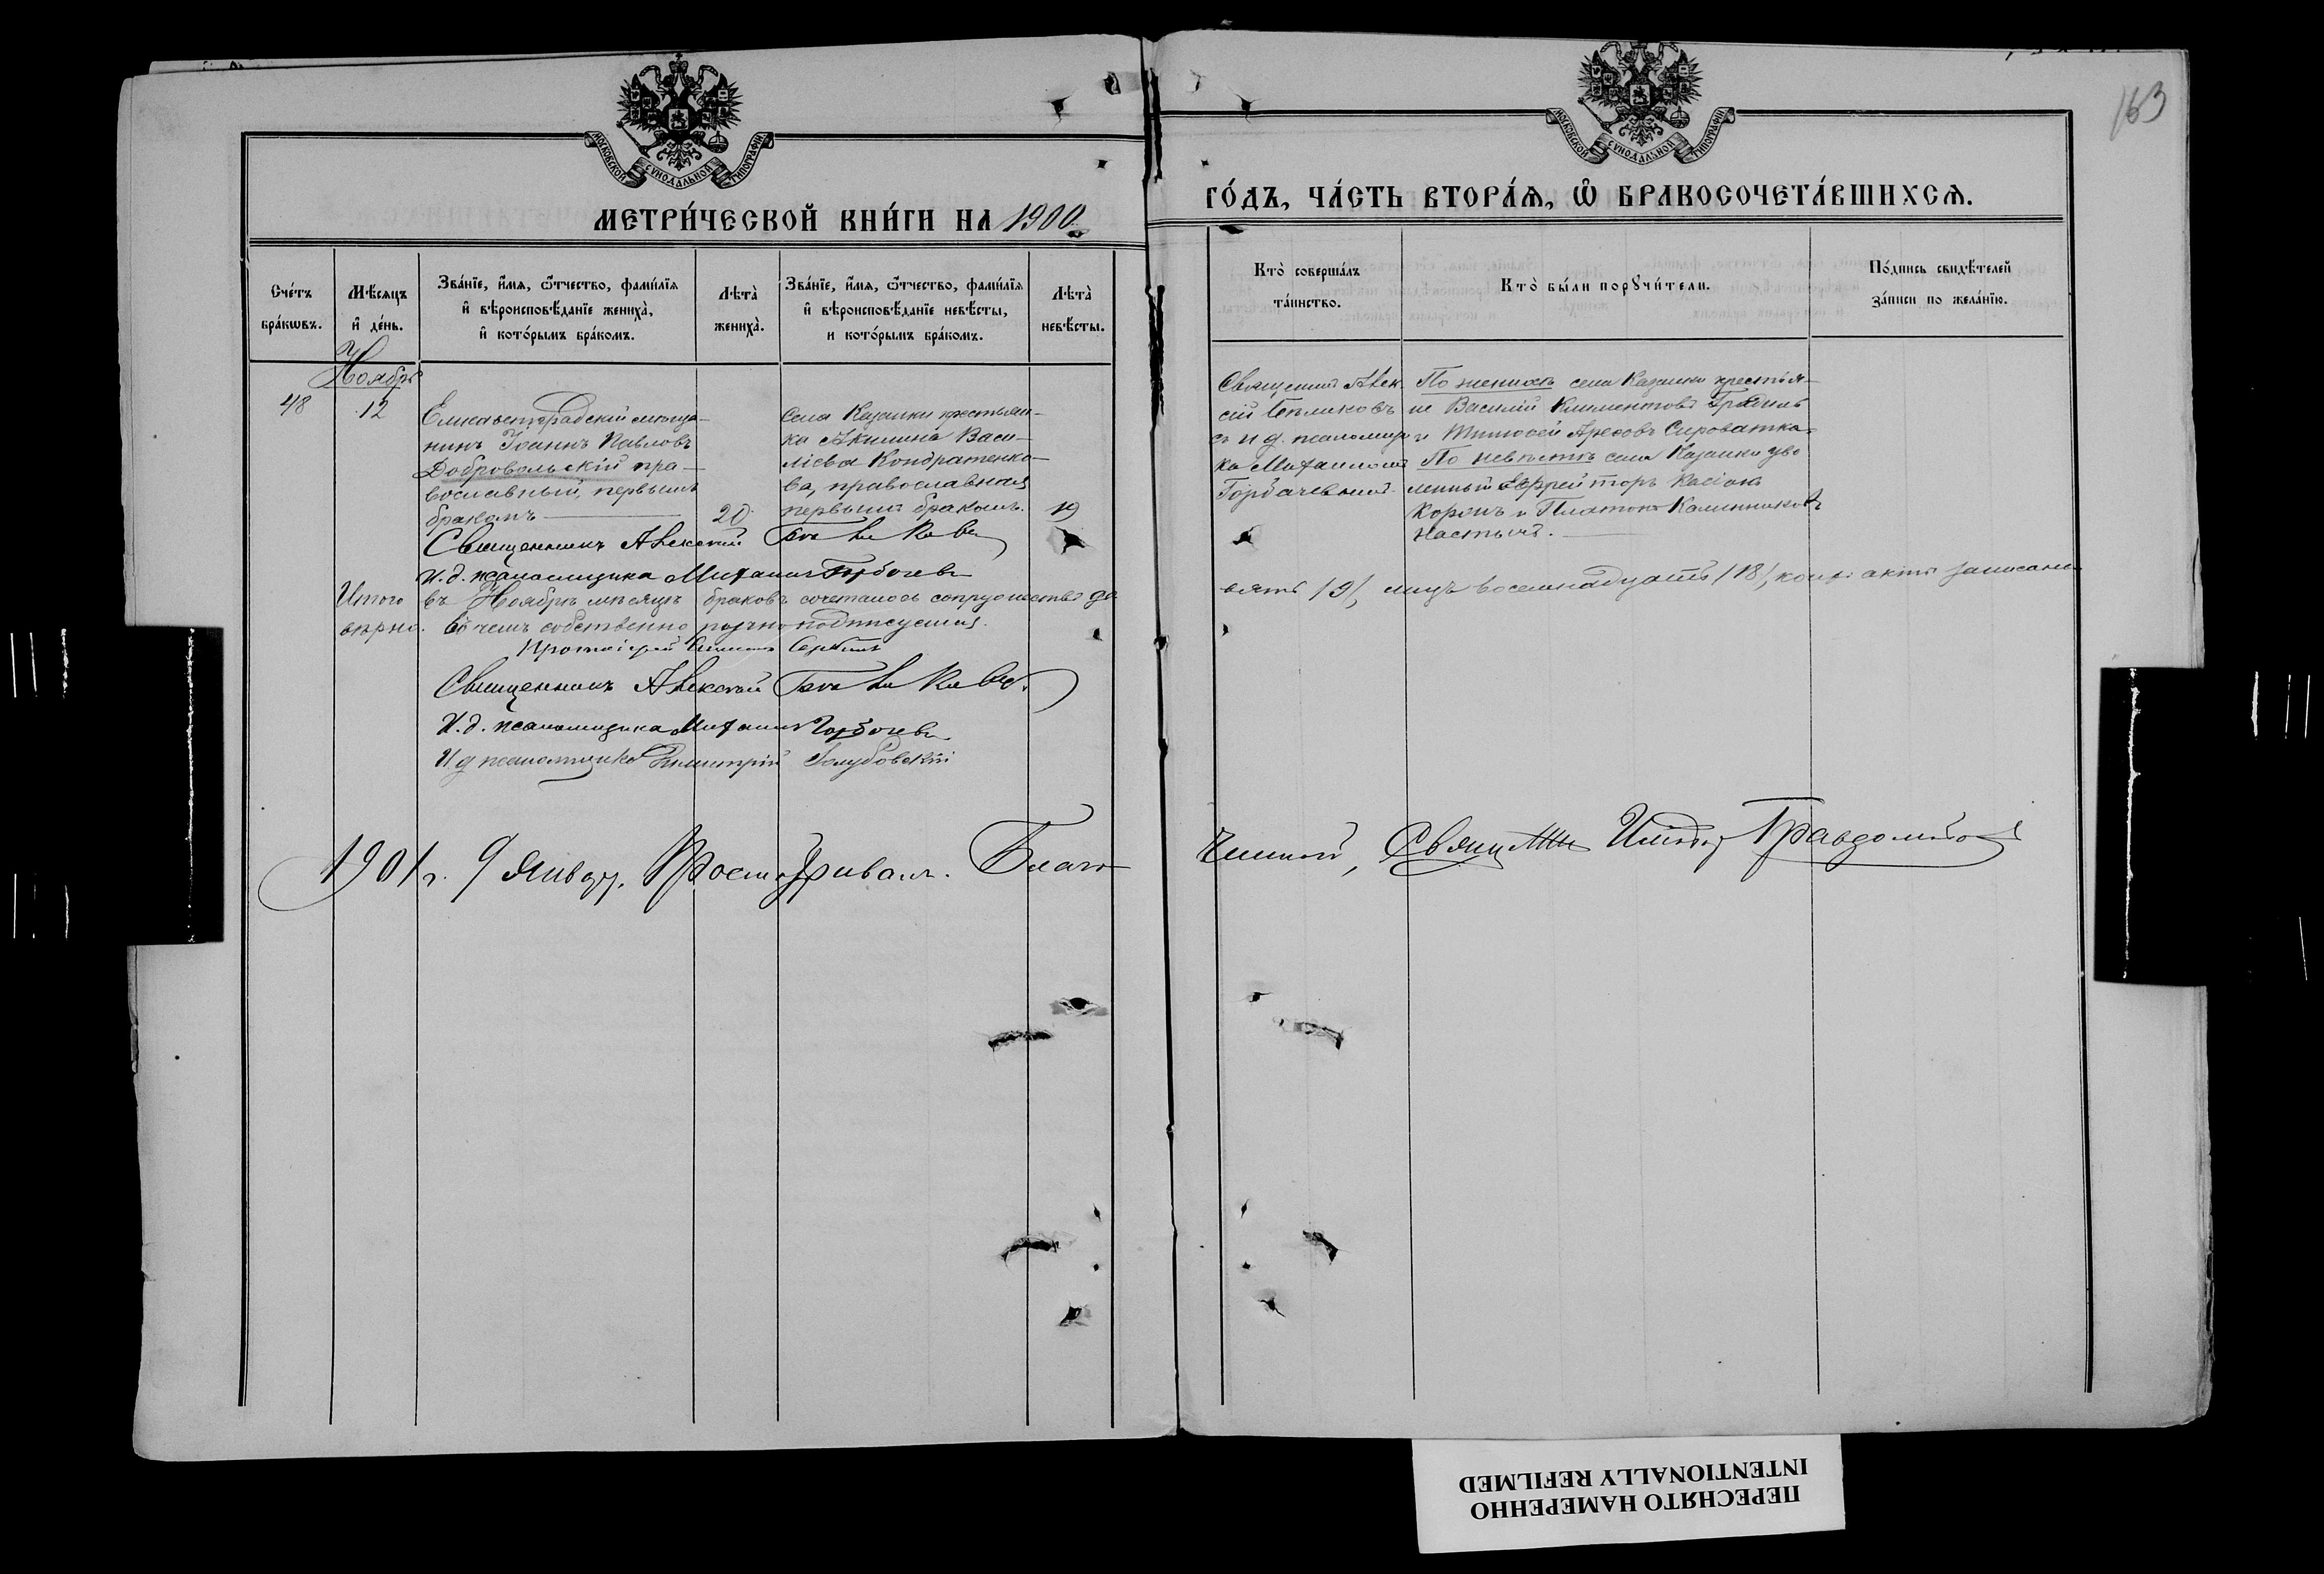 163
МОСКОВСКОЙ СѴНОДАЛЬНОЙ ТИПОГРАФІИ
МОСКОВСКОЙ СѴНОДАЛЬНОЙ ТИПОГРАФІИ
МЕТРИ́ЧЕСКОЙ КНИ́ГИ НА 1900
ГО́ДЪ, ЧА́СТЬ ВТОРА́Ѧ, Ѽ БРАКОСОЧЕТА́ВШИХСѦ.
Сче́тъ
бра́кѡвъ.
Мѣ́сѧцъ
и҆ де́нь.
Зва́нїе, и҆́мѧ, ѻ҆́тчество, фами́лїѧ
и҆ вѣроисповѣ́данїе жениха̀,
и҆ кото́рымъ бра́комъ.
Лѣта̀
жениха̀.
Зва́нїе, и҆́мѧ, ѻ҆́тчество, фами́лїѧ
и҆ вѣроисповѣ́данїе невѣ́сты,
и кото́рымъ бра́комъ.
Лѣта̀
невѣ́сты.
Кто̀ соверша́лъ
та́инство.
Кто̀ бы́ли порꙋчи́тели.
По́дпись свидѣ́телей
за́писи по жела́нїю.
Ноябрь
48
12
Елисаветградскій мѣща-
нинъ Іоаннъ Павловъ
Добровольскій пра-
вославный, первымъ
бракомъ
20
Села Казанки крестьян-
ка Акилина Васи-
ліева Кондратенко-
ва, православная
первымъ бракомъ.
19
Священникъ Алек
сій
съ и д. псаломщи
ка Михаиломъ
Горбачевымъ.
По женихѣ села Казанки крестья-
не Василій Климентовъ
и Тимоѳей Сироватка
По невѣстѣ села Казанки уво
ленный Ефрейторъ Касіанъ
и Платонъ Калинниковъ
Священникъ Алексій
И. д. псаломщика Михаилъ Горбачевъ
Итого въ Ноябрѣ мѣсяцѣ браковъ сочеталось супружества де
вять /9/, лицъ восемнадцать /18/, актъ записанъ
вѣрно. Въ чемъ собственно ручно подписуемся.
Протоіерей
Священникъ Алексій
И. д. псаломщика Михаилъ Горбачевъ
И д псаломщика Димитрій Голубовскій
1901 г. 9 Январ. Просматривалъ. Благо
чинный, Священ
ПЕРЕСНЯТО НАМЕРЕННО
INTENTIONALLY REFILMED